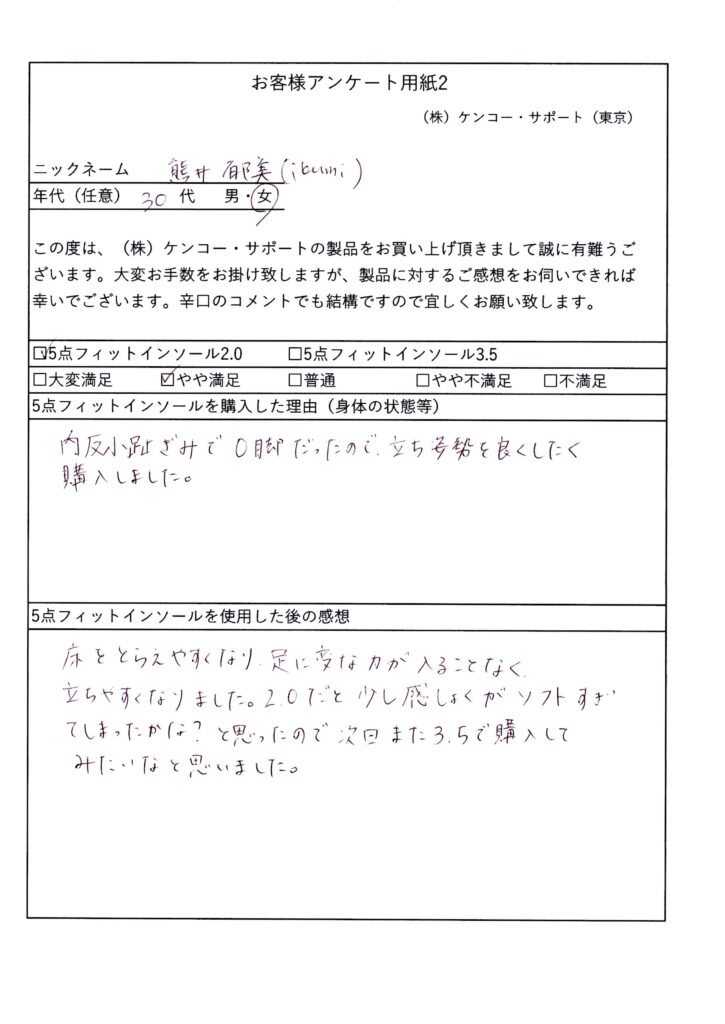 お客様アンケート用紙2
（株）ケンコー・サポート（東京）
ニックネーム 熊井 郁美(ikumi)
年代（任意） 30 代 男・女
この度は、（株）ケンコー・サポートの製品をお買い上げ頂きまして誠に有難うご
ざいます。大変お手数をお掛け致しますが、製品に対するご感想をお伺いできれば
幸いでございます。辛口のコメントでも結構ですので宜しくお願い致します。
☑5点フィットインソール2.0 □5点フィットインソール3.5
□大変満足 ☑やや満足 □普通 □やや不満足 □不満足
5点フィットインソールを購入した理由（身体の状態等）
内反小趾ぎみでO脚だったので、立ち姿勢を良くしたく
購入しました。
5点フィットインソールを使用した後の感想
床をとらえやすくなり、足に変な力が入ることなく、
立ちやすくなりました。2.0だと少し感しょくがソフトすぎ
てしまったかな？と思ったので次回また3.5で購入して
みたいなと思いました。